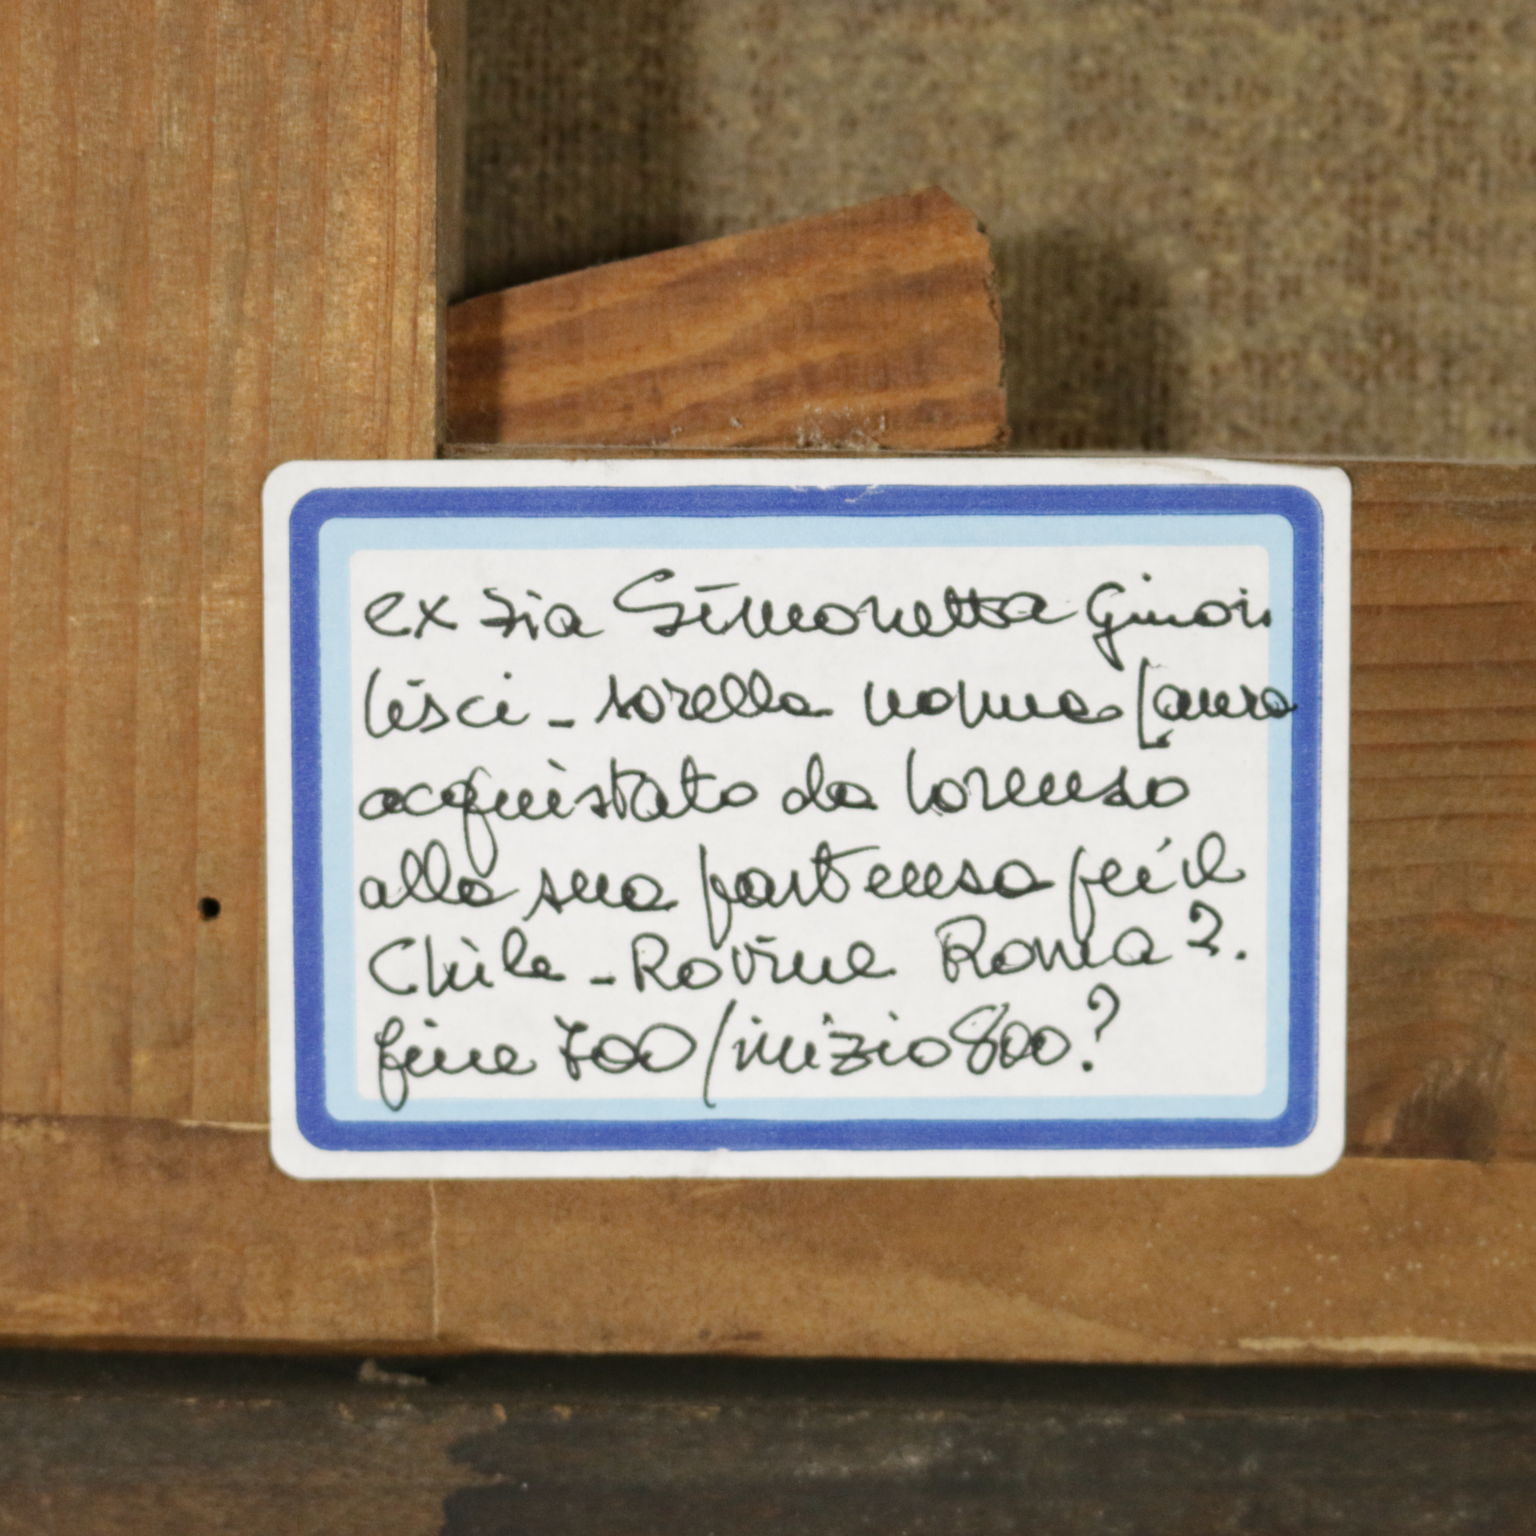 ex zia Simonetta Ginori
Lisci - sorella nonna Laura
acquistato da Lorenzo
alla sua partenza per il
Chile - Rovine Roma?.
fine 700/inizio 800?